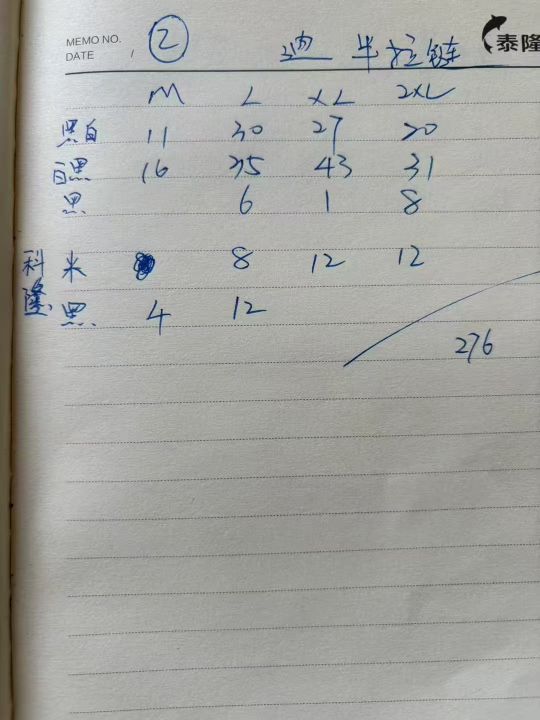 MEMO NO. ② 泰隆
DATE / 迪 半拉链
M L XL 2XL
黑白 11 30 27 20
白黑 16 35 43 31
黑 6 1 8
科隆 米 8 12 12
黑 4 12
276